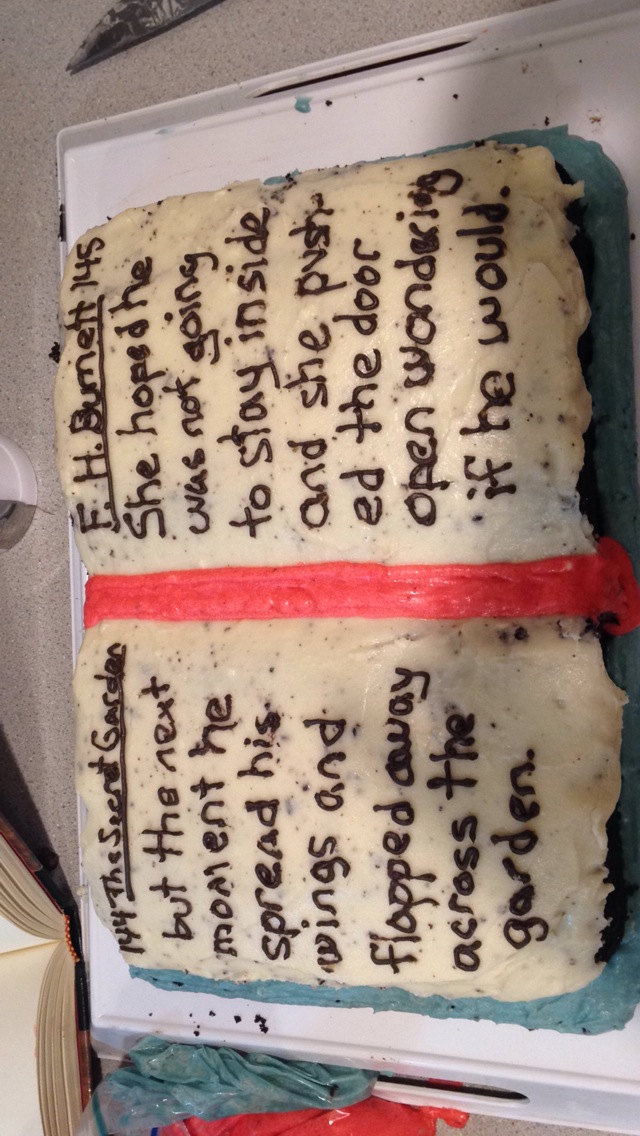 144 The Secret Garden
but the next
moment he
spread his
wings and
flapped away
across the
garden.
F. H. Burnett 145
She hoped he
was not going
to stay inside
and she push
ed the door
open wondering
if he would.